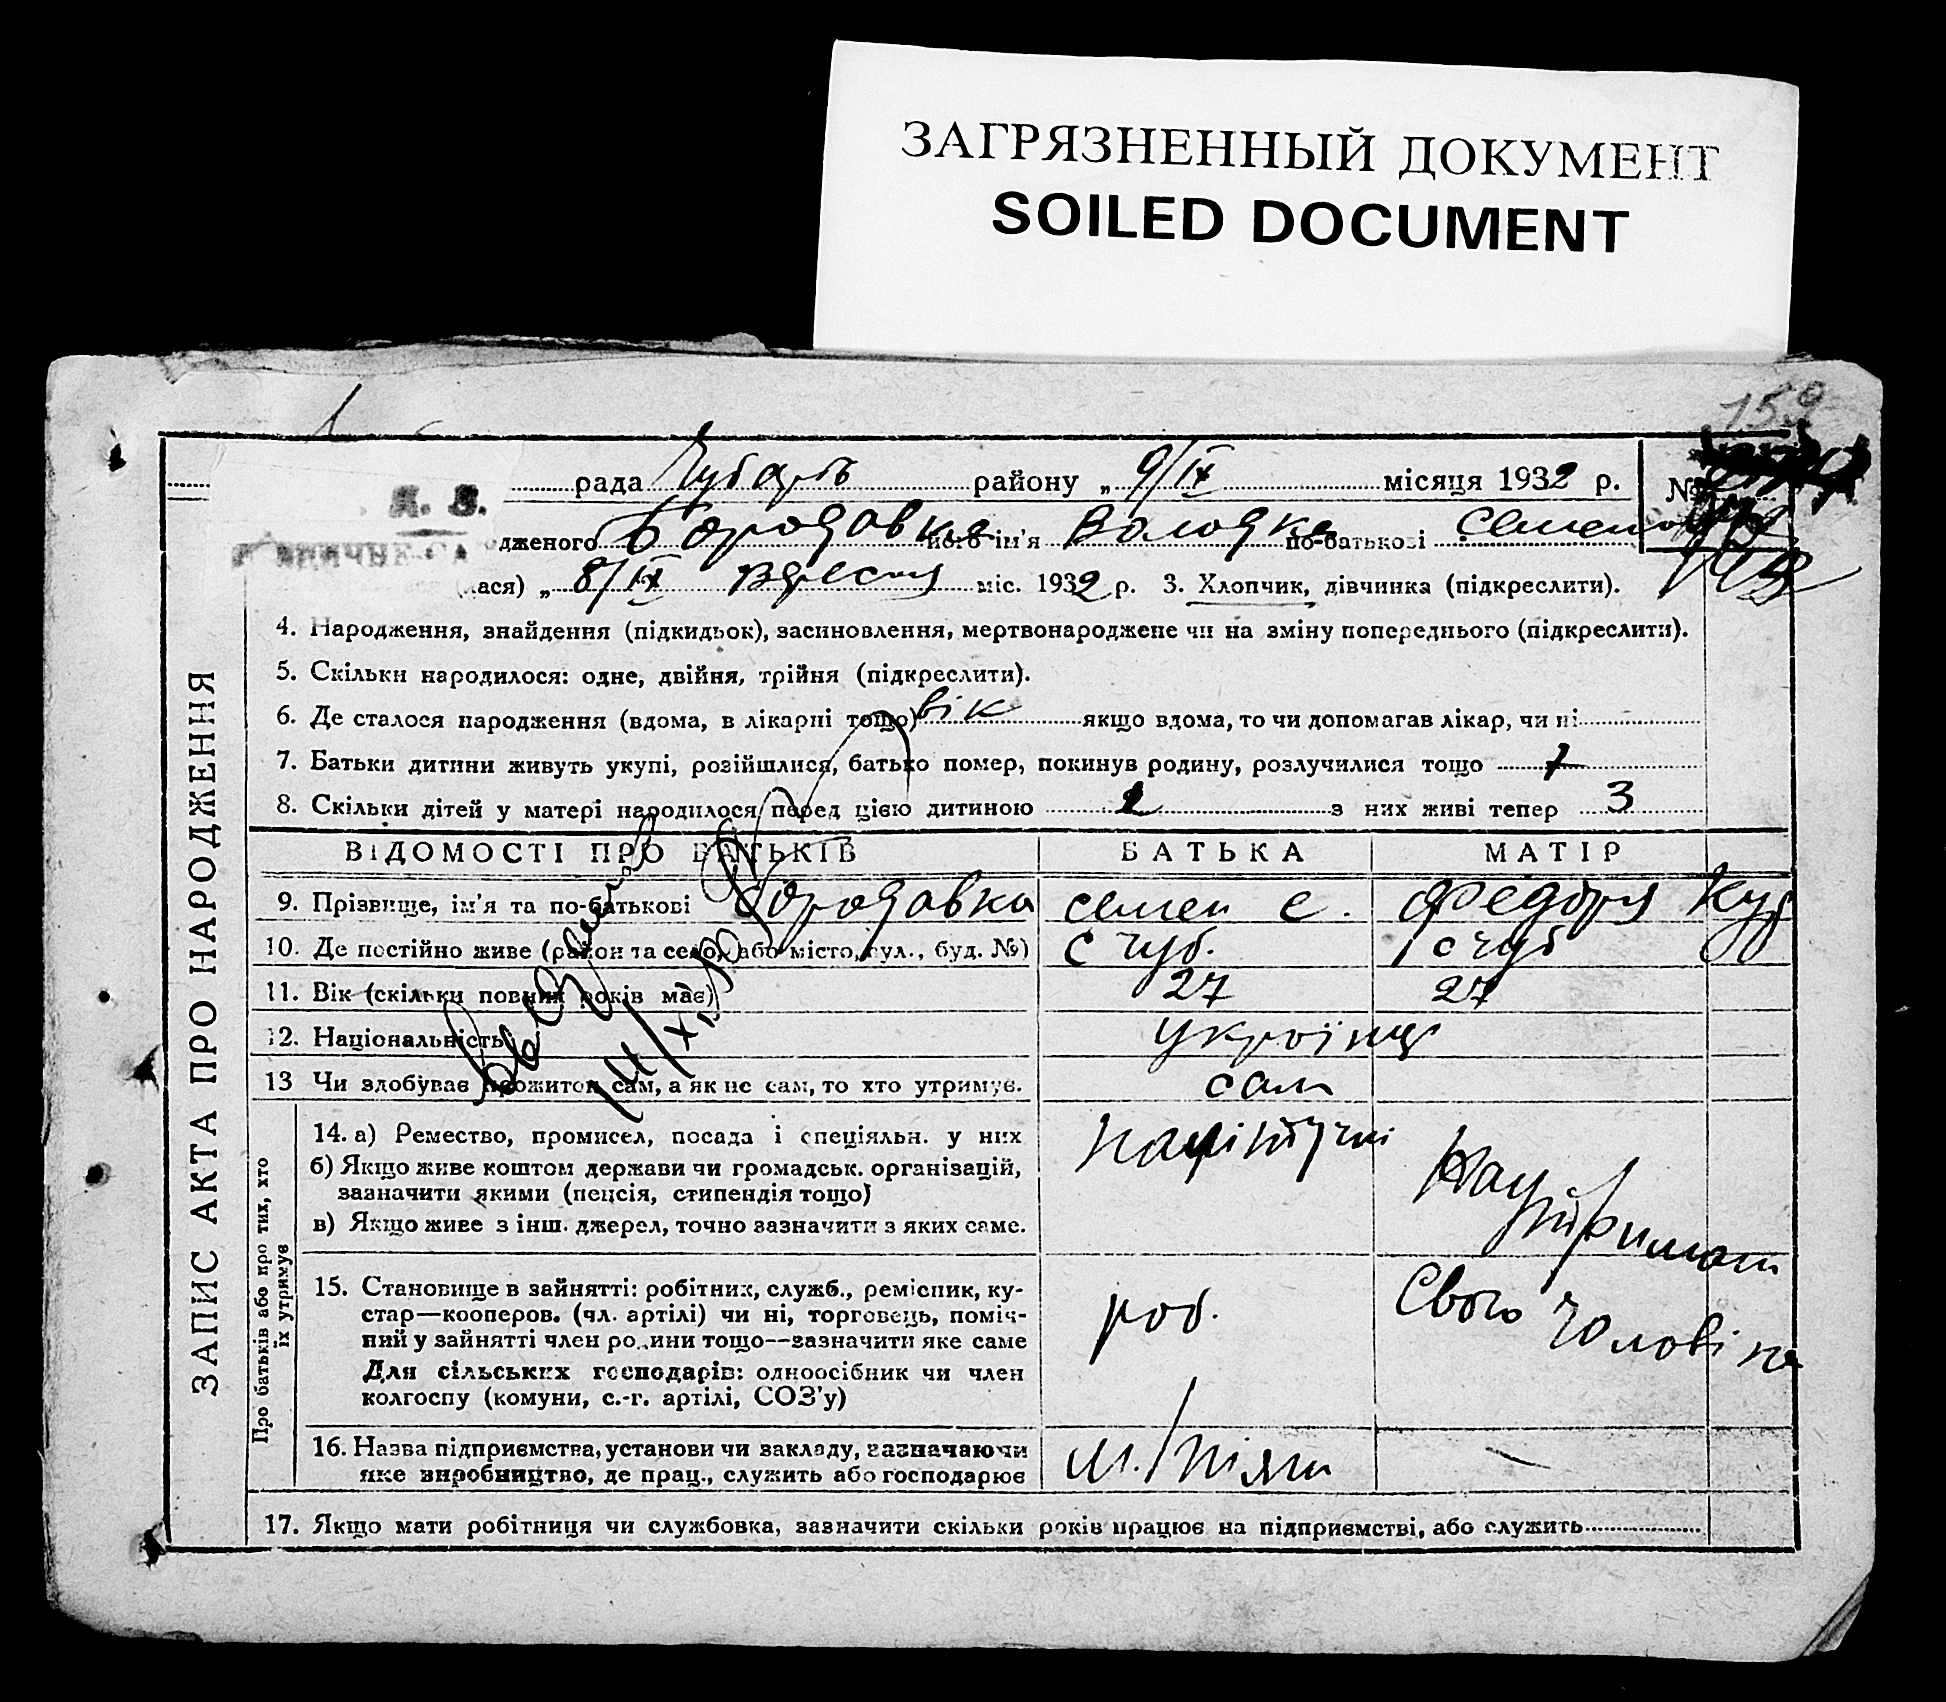 ЗАГРЯЗНЕННЫЙ ДОКУМЕНТ
SOILED DOCUMENT
159
рада Чубарь району „ 9/IX місяця 1932 р. №
дженого Бородавка його ім'я Володька по-батькові Семено
(лася) „ 8/IX Вересня міс. 1932 р. 3. Хлопчик, дівчинка (підкреслити).
4. Народження, знайдення (підкидьок), засиновлення, мертвонароджене чи на зміну попереднього (підкреслити).
5. Скільки народилося: одне, двійня, трійня (підкреслити).
6. Де сталося народження (вдома, в лікарні тощо) вік якщо вдома, то чи допомагав лікар, чи ні
7. Батьки дитини живуть укупі, розійшлися, батько помер, покинув родину, розлучилися тощо
8. Скільки дітей у матері народилося перед цією дитиною 2 з них живі тепер 3
ЗАПИС АКТА ПРО НАРОДЖЕННЯ
ВІДОМОСТІ ПРО БАТЬКІВ БАТЬКА МАТІР
9. Прізвище, ім'я та по-батькові Бородавка Семен Є. Федора Куз
10. Де постійно живе (район та село, або місто, вул., буд. №) с Чуб. с Чуб
11. Вік (скільки повних років має) 27 27
12. Національність українці
13 Чи здобуває прожиток сам, а як не сам, то хто утримує. сам
Про батьків або про тих, хто їх утримує
14. а) Ремество, промисел, посада і спеціяльн. у них
б) Якщо живе коштом держави чи громадськ. організацій,
зазначити якими (пенсія, стипендія тощо)
в) Якщо живе з інш. джерел, точно зазначити з яких саме.
15. Становище в зайнятті: робітник, служб., ремісник, ку-
стар—кооперов. (чл. артілі) чи ні, торговець, поміч-
ний у зайнятті член родини тощо—зазначити яке саме
роб. Свого Чоловіка
Для сільських господарів: одноосібник чи член
колгоспу (комуни, с.-г. артілі, СОЗ'у)
16. Назва підприємства, установи чи закладу, зазначаючи
яке виробництво, де прац., служить або господарює
17. Якщо мати робітниця чи службовка, зазначити скільки років працює на підприємстві, або служить